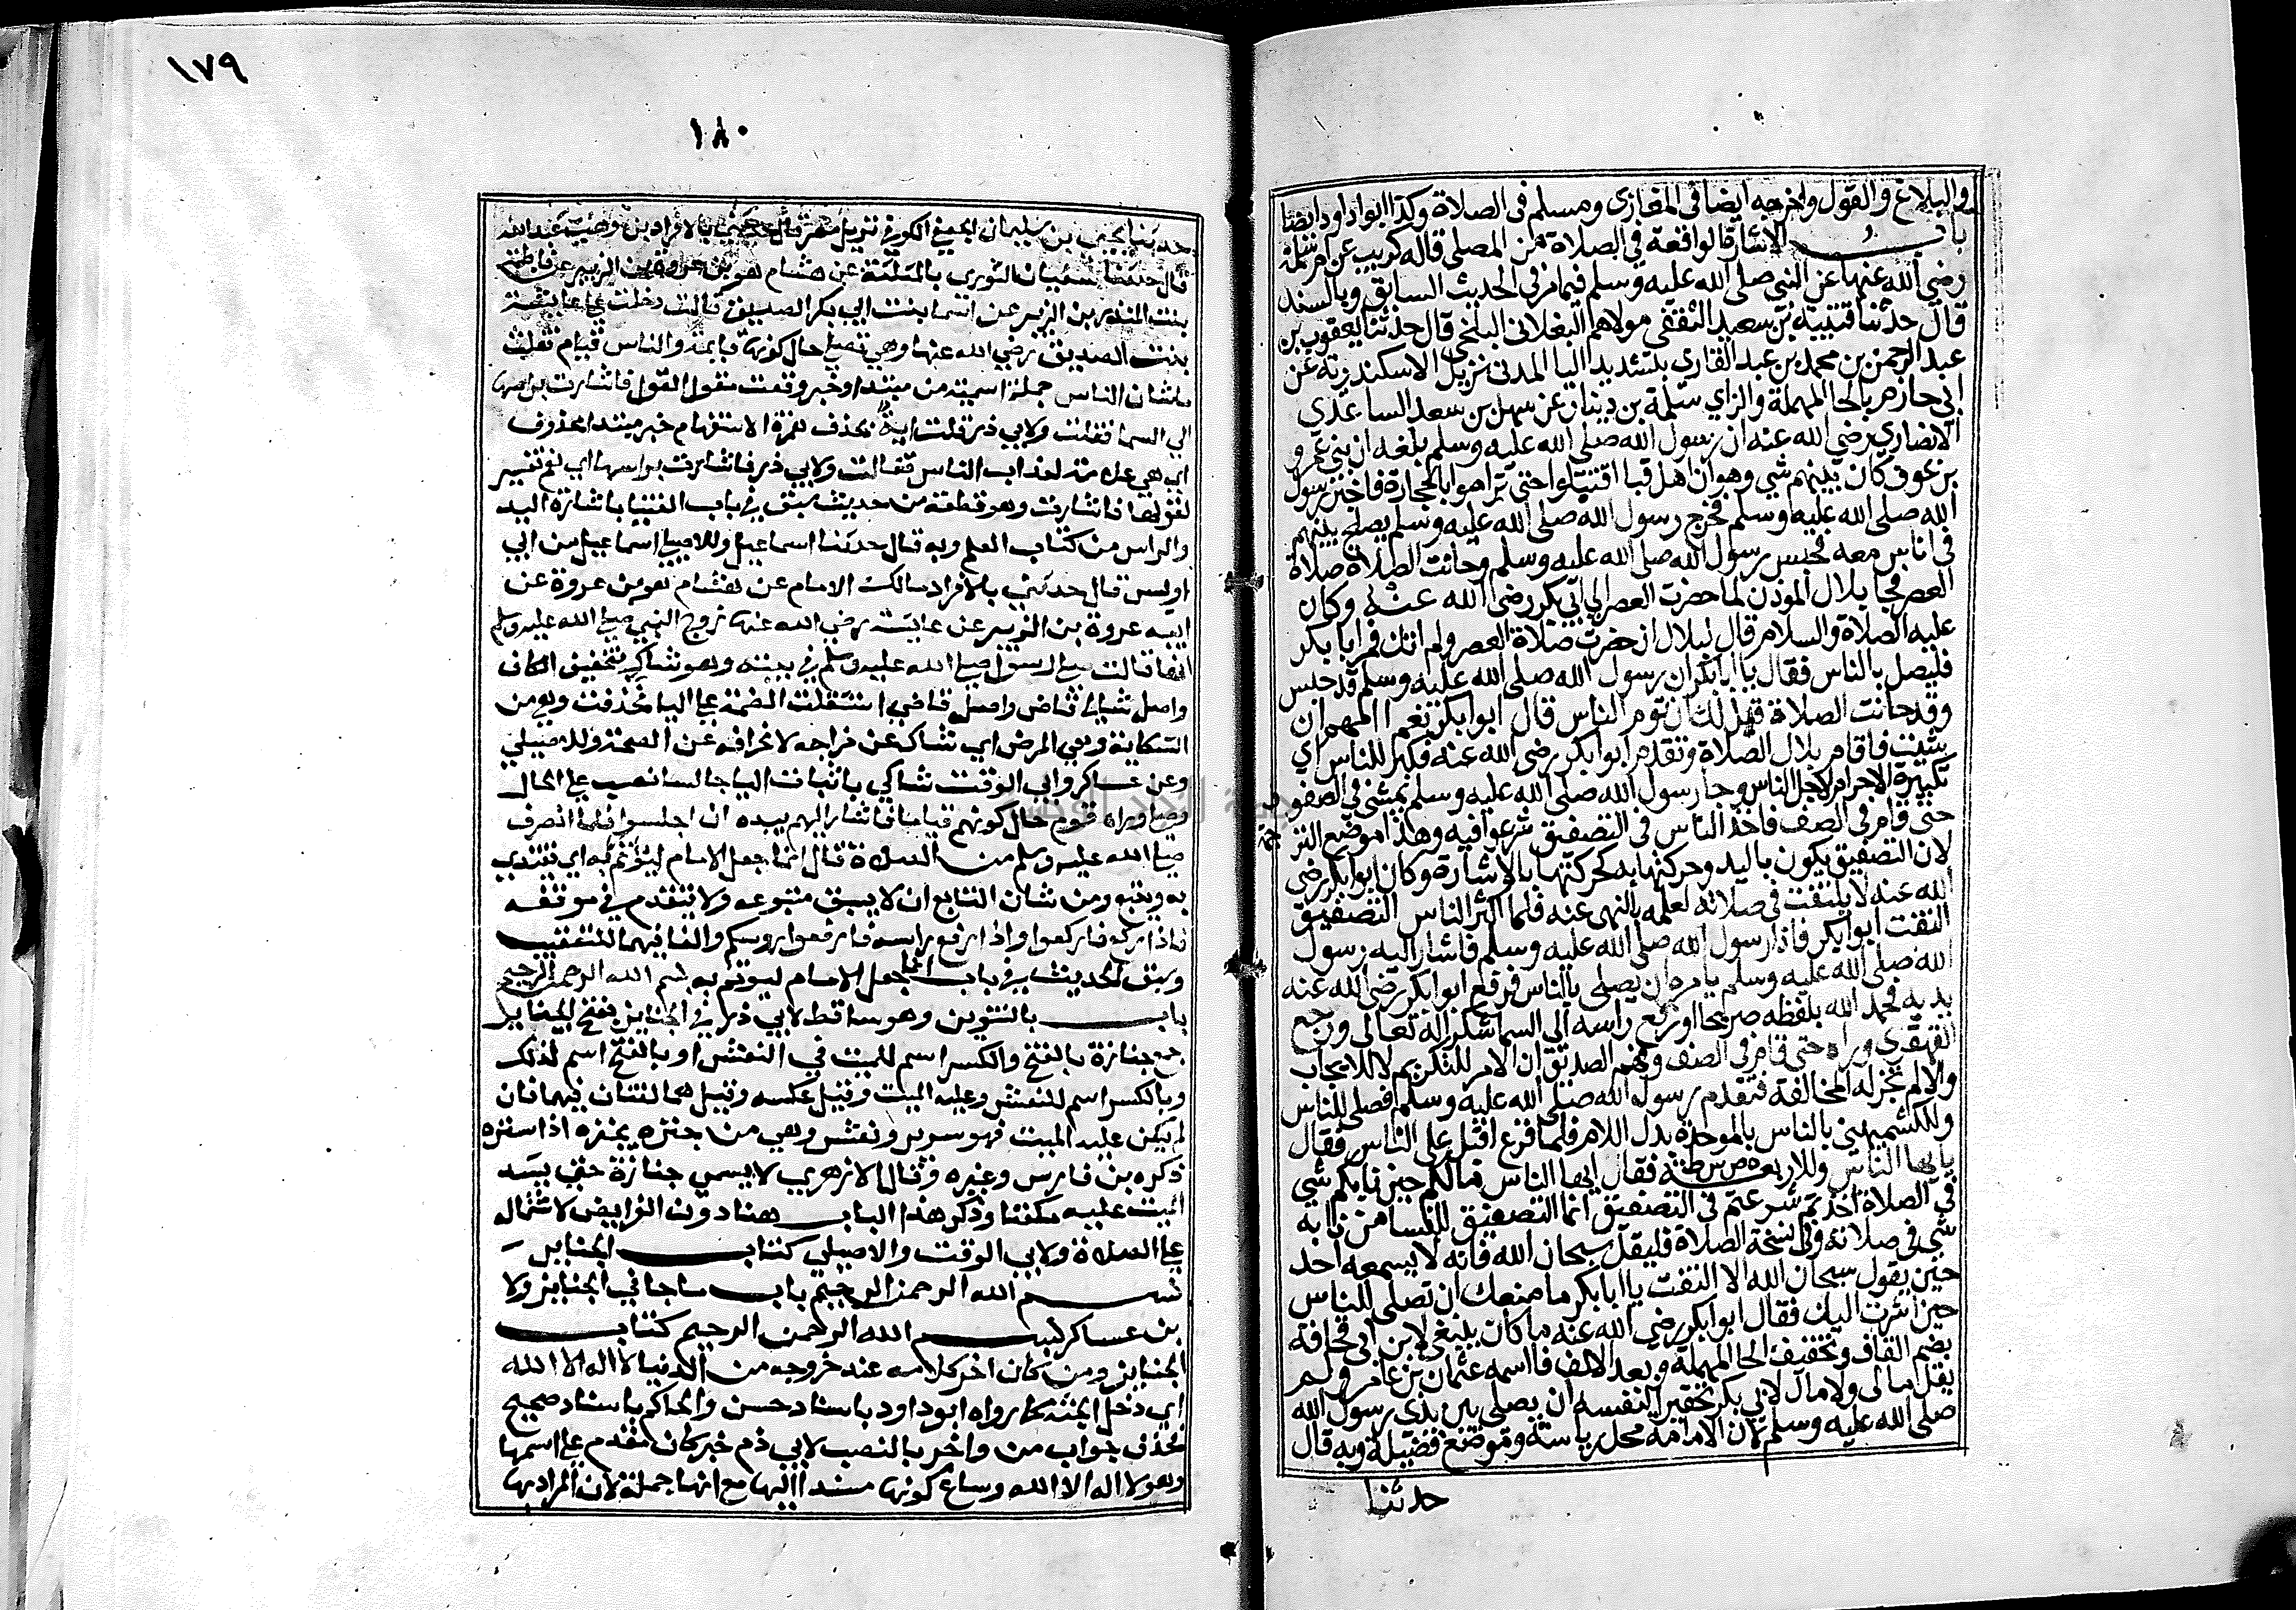 والبلاغ والقول واخرجه ايضا في المغازي ومسلم في الصلاة وكذا ابو داود ايضا
باب الاشارة الواقعة في الصلاة من المصلي قاله كريب عن ام سلمة
رضي الله عنها عن النبي صلى الله عليه وسلم فيما مر في الحديث السابق وبالسند
قال حدثنا قتيبة بن سعيد الثقفي مولاهم البغلاني البلخي قال حدثنا يعقوب بن
عبد الرحمن بن محمد بن عبد القاري بتشديد اليا المدني نزيل الاسكندرية عن
ابي حازم بالحا المهملة والزاي سلمة بن دينار عن سهل بن سعد الساعدي
الانصاري رضي الله عنه ان رسول الله صلى الله عليه وسلم بلغه ان بني عمرو
بن عوف كان بينهم شي وهو ان اهل قبا اقتتلوا حتى تراموا بالحجارة فاخبر رسول
الله صلى الله عليه وسلم فخرج رسول الله صلى الله عليه وسلم يصلح بينهم
في اناس معه فحبس رسول الله صلى الله عليه وسلم وحانت الصلاة صلاة
العصر فجا بلال الموذن لما حضرت العصر الي ابي بكر رضي الله عنه وكان
عليه الصلاة والسلام قال لبلال ان حضرت صلاة العصر ولم اتك فمر ابا بكر
فليصل بالناس فقال يا ابا بكر ان رسول الله صلى الله عليه وسلم قد حبس
وقد حانت الصلاة فهل لك ان توم الناس قال ابو بكر نعم ان
شيت فاقام بلال الصلاة وتقدم ابو بكر رضي الله عنه فكبر للناس اي
تكبيرة الاحرام لاجل الناس وجا رسول الله صلى الله عليه وسلم يمشي في الصفوف
حتى قام في الصف فاخذ الناس في التصفيق شرعوا فيه وهذا موضع التر جمة
لان التصفيق يكون باليد وحركتها به كحركتها بالاشارة وكان ابو بكر رضي
الله عنه لا يلتفت في صلاته لعلمه بالنهي عنه فلما اكثر الناس التصفيق
التفت ابو بكر فاذا رسول الله صلى الله عليه وسلم فاشار اليه رسول
الله صلى الله عليه وسلم يامره ان يصلي بالناس فرفع ابو بكر رضي الله عنه
يديه فحمد الله بلفظه صريحا او رفع راسه الي السما شكرا له تعالى ورجع
القهقري وراه حتى قام في الصف وفهم الصديق ان الامر للتكريم لا للايجاب
والا لم تجز له المخالفة فتقدم رسول الله صلى الله عليه وسلم فصلى للناس
وللكشميهني بالناس بالموحدة بدل اللام فلما فرغ اقبل على الناس فقال
يا ايها الناس وللاربعة ص س ط فقال ايها الناس ما لكم حين نابكم شي
في الصلاة اخذتم شرعتم في التصفيق انما التصفيق للنسا من نابه
شي في صلاته وفي نسخة الصلاة فليقل سبحان الله فانه لا يسمعه احد
حين يقول سبحان الله الا التفت يا ابا بكر ما منعك ان تصلي للناس
حين اشرت اليك فقال ابو بكر رضي الله عنه ما كان ينبغي لابن ابي قحافة
بضم القاف وتخفيف الحا المهملة وبعد الالف فا اسمه عثمان بن عامر ولم
يقل ما لي ولا مال لابي بكر تحقيرا لنفسه ان يصلي بين يدي رسول الله
صلى الله عليه وسلم لان الامامة محل رياسة وموضع فضيلة وبه قال
حدثنا
١٧٩
١٨٠
حدثنا يحيى بن سليمان الجعفي الكوفي نزيل مصر قال حدثني بالافراد بن وهب عبد الله
قال حدثنا سفيان الثوري بالمثلثة عن هشام هو بن عروة بن الزبير عن فاطمة
بنت المنذر بن الزبير عن اسما بنت ابي بكر الصديق قالت دخلت على عايشة
بنت الصديق رضي الله عنها وهي تصلي حال كونها قايمة والناس قيام فقلت
ما شان الناس جملة اسمية من مبتدا وخبر وقعت مقول القول فاشارت براسها
الي السما فقلت ولابي ذر قلت اية بحذف همزة الاستفهام خبر مبتدا محذوف
اي هي علامة لعذاب الناس فقالت ولابي ذر فاشارت براسها اي نعم تفسير
لقولها فاشارت وهو قطعة من حديث سبق في باب الفتيا باشارة اليد
والراس من كتاب العلم وبه قال حدثنا اسماعيل وللاصيلي اسماعيل بن ابي
اويس قال حدثني بالافراد مالك الامام عن هشام هو بن عروة عن
ابيه عروة بن الزبير عن عايشة رضي الله عنها زوج النبي صلى الله عليه وسلم
انها قالت صلى رسول صلى الله عليه وسلم في بيته وهو شاك بتخفيف الكاف
واصل شاك قاض واصل قاضي استثقلت الضمة على اليا فحذفت وهو من
الشكاية وهي المرض اي شاك عن مزاجه لانحرافه عن الصحة وللاصيلي
وعن عساكر وابي الوقت شاكي باثبات اليا جالسا نصب على الحال
وصلى وراه قوم حال كونهم قياما فاشار اليهم بيده ان اجلسوا فلما انصرف
صلى الله عليه وسلم من الصلاة قال انما جعل الامام ليوتم به اي يقتدي
به ويتبع ومن شان التابع ان لا يسبق متبوعه ولا يتقدم في موقفه
فاذا ركع فاركعوا واذا رفع راسه فارفعوا روسكم والفا فيهما للتعقيب
وسبق الحديث في باب انما جعل الامام ليوتم به بسم الله الرحمن الرحيم
باب بالتنوين وهو ساقط لابي ذر في الجنايز بفتح الجيم
جمع جنازة بالفتح والكسر اسم للميت في النعش او بالفتح اسم لذلك
وبالكسر اسم للنعش وعليه الميت وقيل عكسه وقيل هما لغتان فيهما فان
لم يكن عليه الميت فهو سرير ونعش وهي من جنزه يجنزه اذا ستره
ذكره بن فارس وغيره وقال الازهري لا يسمي جنازة حتى يشد
الميت عليه مكفنا وذكر هذا الباب هنا دون الفرايض لاشتماله
على الصلاة ولابي الوقت والاصيلي كتاب الجنايز
بسم الله الرحمن الرحيم باب ما جا في الجنايز ولا
بن عساكر بسم الله الرحمن الرحيم كتاب
الجنايز ومن كان اخر كلامه عند خروجه من الدنيا لا اله الا الله
اي دخل الجنة كما رواه ابو داود باسناد حسن والحاكم باسناد صحيح
فحذف جواب من واخر بالنصب لابي ذر خبر كان مقدم على اسمها
وهو لا اله الا الله وساغ كونها مسندا اليها مع انها جملة لان المراد بها